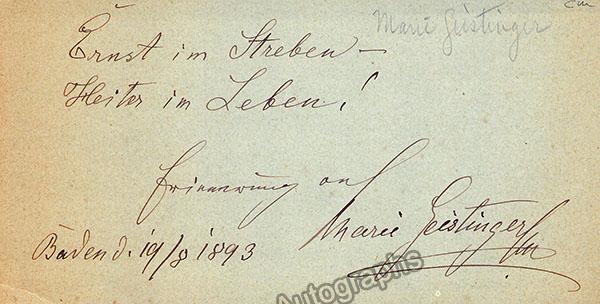 Marie Geistinger
Ernst im Streben –
Heiter im Leben!
Erinnerung an
Marie Geistinger
Baden d. 19/8 1893
Autographs